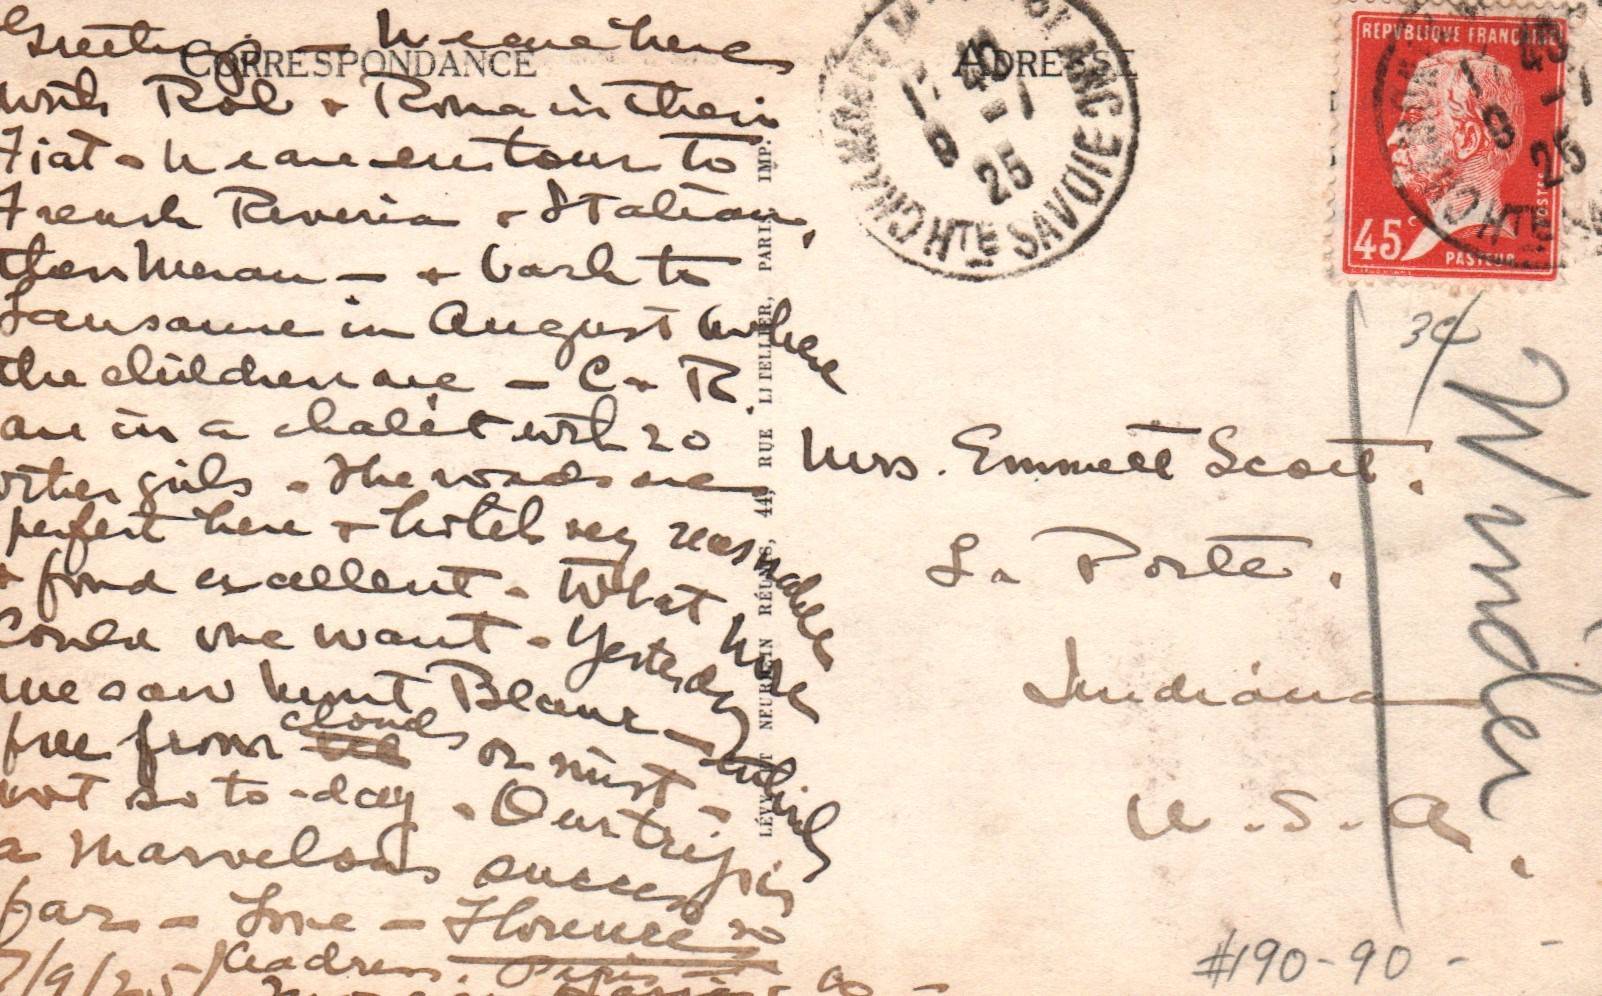 CORRESPONDANCE
ADRESSE
Greetings - We are here
with Rob + Roma in their
Fiat - We are en tour to
French Riveria + Italian,
then Meran - + back to
Lausanne in August where
the children are - C + R.
are in a chalêt with 20
other girls - The roads are
perfect here + hotels very reasonable
+ food excellent - What more
Could one want - Yesterday
we saw Mont Blanc - entirely
free from clouds or mist -
not so to-day - Our trip is
a marvelous success so
far - Love - Florence
7/9/25/ address. Paris
LÉVY ET NEURDEIN RÉUNIS, 44, RUE LETELLIER, PARIS IMP.
CHAMONIX MONT BLANC HTE SAVOIE
25
REPVBLIQUE FRANÇAISE
45c
POSTES
PASTEUR
3¢
Winder
Mrs. Emmett Scott.
La Porte.
Indiana
U.S.A.
#190-90-